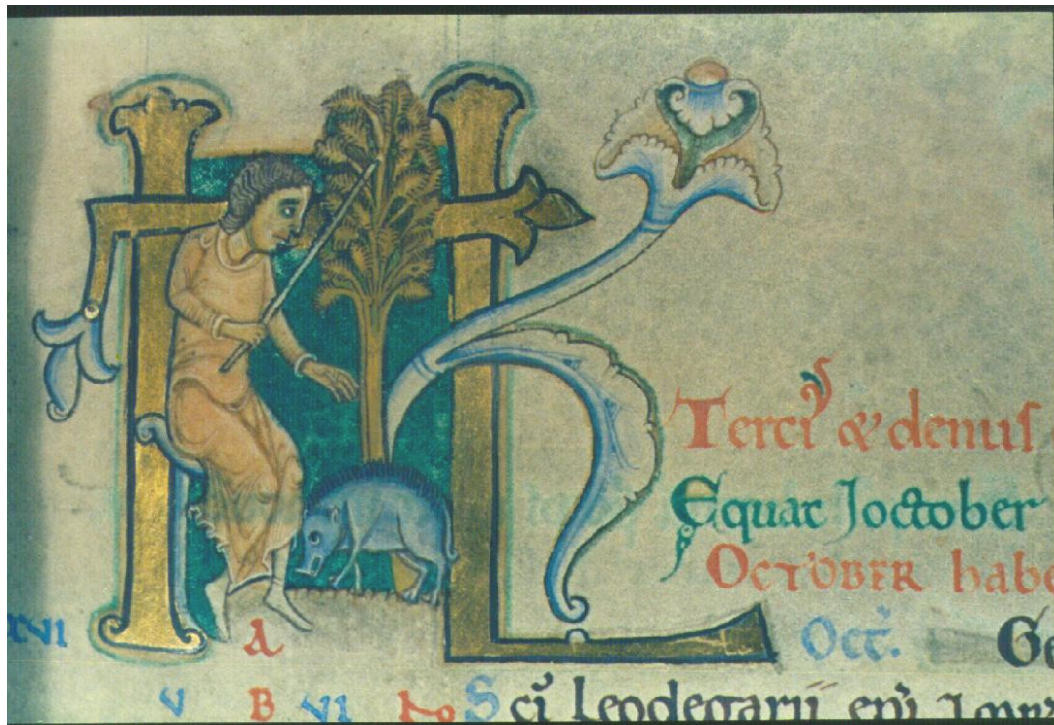 KL
Terci' & denus
Equat Joctober
OCTOBER habe
XVI A Oct'. Ge
V B VI No Sci Leodegarii epi